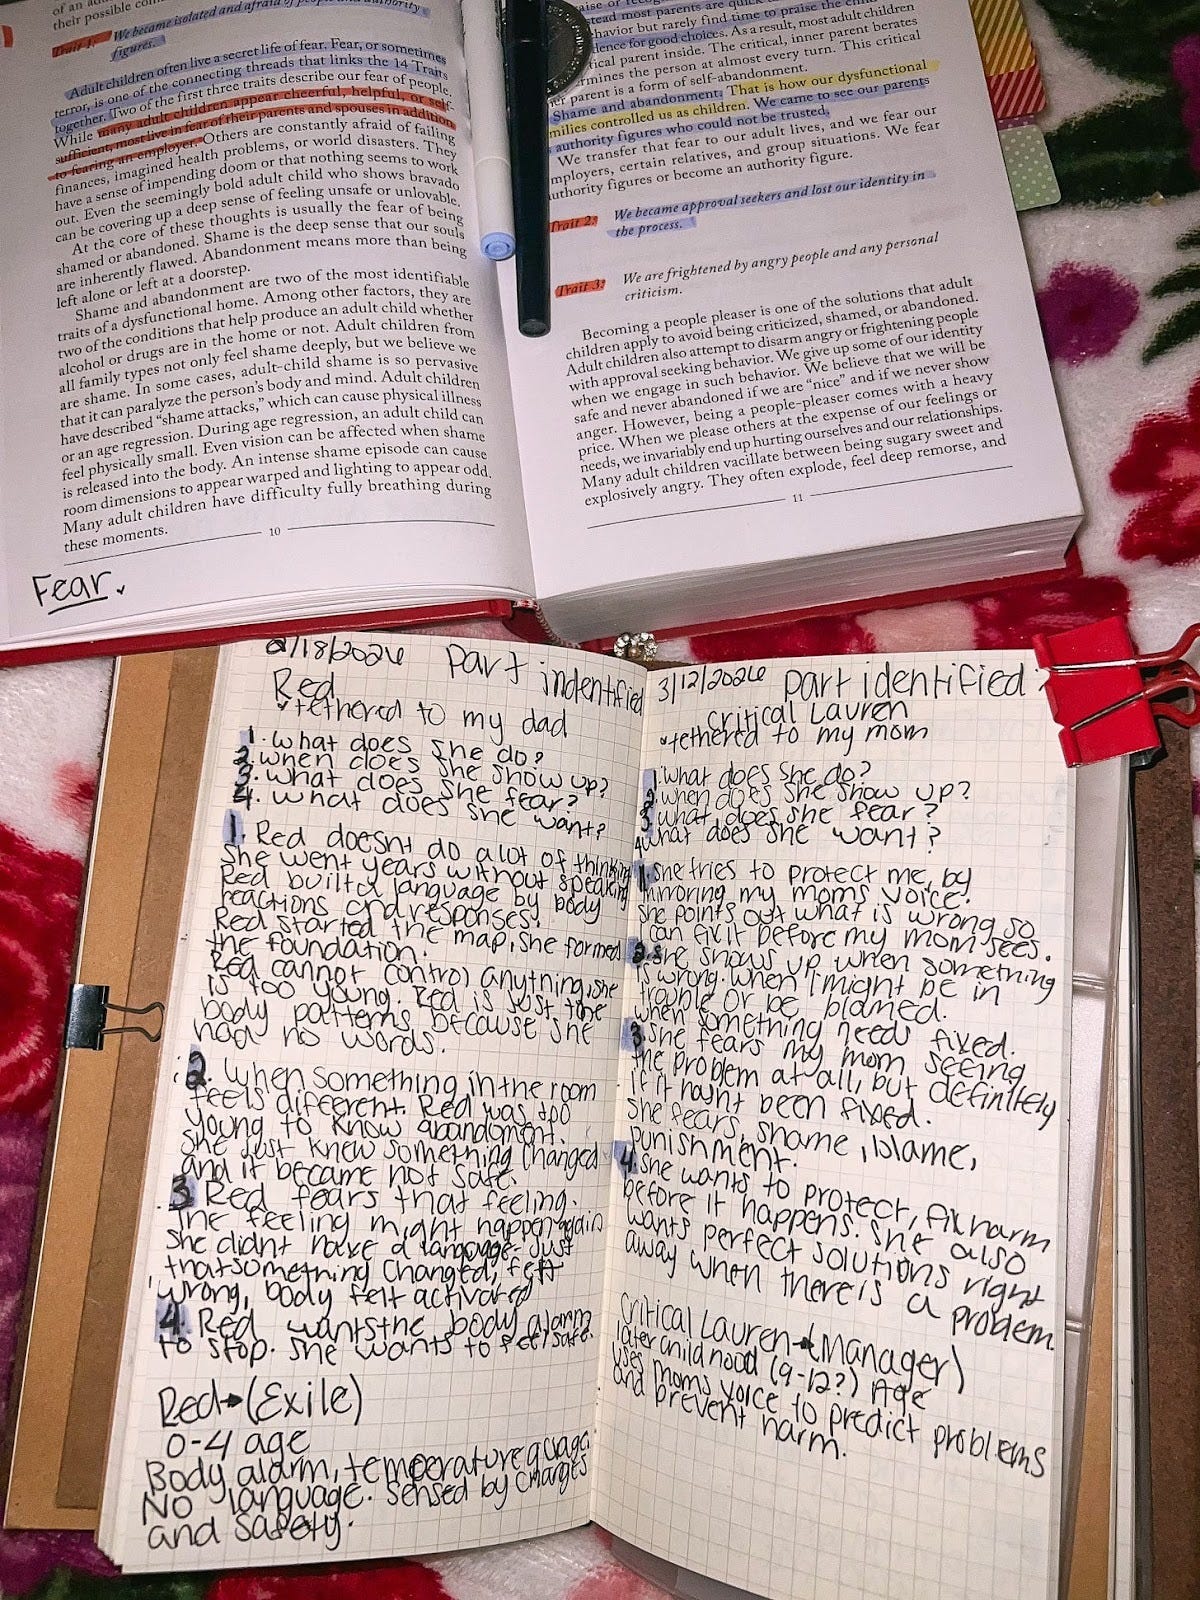 of an
their possible
Trait 1: We became isolated and afraid of people and authority
figures.
Adult children often live a secret life of fear. Fear, or sometimes
terror, is one of the connecting threads that links the 14 Traits
together. Two of the first three traits describe our fear of people.
While many adult children appear cheerful, helpful, or self-
sufficient, most live in fear of their parents and spouses in addition
to fearing an employer. Others are constantly afraid of failing
finances, imagined health problems, or world disasters. They
have a sense of impending doom or that nothing seems to work
out. Even the seemingly bold adult child who shows bravado
can be covering up a deep sense of feeling unsafe or unlovable.
At the core of these thoughts is usually the fear of being
shamed or abandoned. Shame is the deep sense that our souls
are inherently flawed. Abandonment means more than being
left alone or left at a doorstep.
Shame and abandonment are two of the most identifiable
traits of a dysfunctional home. Among other factors, they are
two of the conditions that help produce an adult child whether
alcohol or drugs are in the home or not. Adult children from
all family types not only feel shame deeply, but we believe we
are shame. In some cases, adult-child shame is so pervasive
that it can paralyze the person's body and mind. Adult children
have described "shame attacks," which can cause physical illness
or an age regression. During age regression, an adult child can
feel physically small. Even vision can be affected when shame
is released into the body. An intense shame episode can cause
room dimensions to appear warped and lighting to appear odd.
Many adult children have difficulty fully breathing during
these moments.
10
Fear.
aise or
stead most parents are quick
havior but rarely find time to praise the child
dence for good choices. As a result, most adult children
tical parent inside. The critical, inner parent berates
rmines the person at almost every turn. This critical
er parent is a form of self-abandonment.
Shame and abandonment. That is how our dysfunctional
milies controlled us as children. We came to see our parents
authority figures who could not be trusted.
We transfer that fear to our adult lives, and we fear our
mployers, certain relatives, and group situations. We fear
uthority figures or become an authority figure.
Trait 2: We became approval seekers and lost our identity in
the process.
Trait 3: We are frightened by angry people and any personal
criticism.
Becoming a people pleaser is one of the solutions that adult
children apply to avoid being criticized, shamed, or abandoned.
Adult children also attempt to disarm angry or frightening people
with approval seeking behavior. We give up some of our identity
when we engage in such behavior. We believe that we will be
safe and never abandoned if we are "nice" and if we never show
anger. However, being a people-pleaser comes with a heavy
price. When we please others at the expense of our feelings or
needs, we invariably end up hurting ourselves and our relationships.
Many adult children vacillate between being sugary sweet and
explosively angry. They often explode, feel deep remorse, and
11
2/18/2026 Part indentified
Red
tethered to my dad
1. What does she do?
2. When does she show up?
3. What does she fear?
4. What does she want?
1. Red doesnt do a lot of thinking
She went years without speaking
Red built a language by body
reactions and responses.
Red started the map, she formed
the foundation.
Red cannot control anything, she
is too young. Red is just the
body patterns because she
had no words.
2. When something in the room
feels different. Red was too
young to know abandoment.
She just knew something changed
and it became not safe.
3. Red fears that feeling.
The feeling might happen again
She didnt have a language. Just
that something changed, felt
wrong, body felt activated
4. Red wants the body alarm
to stop. She wants to feel safe.
Red→(Exile)
0-4 age
Body alarm, temperature
No language. Sensed by changes
and safety.
3/12/2026 Part identified:
Critical Lauren
tethered to my mom
1. What does she do?
2. When does she show up?
3. What does she fear?
4. What does she want?
1. She tries to protect me, by
mirroring my moms voice.
She points out what is wrong so
I can fix it before my mom sees.
2. She shows up when something
is wrong. When I might be in
trouble or be blamed.
When something needs fixed.
3. She fears my mom seeing
the problem at all, but definitely
if it hasnt been fixed.
She fears, shame, blame,
punishment.
4. She wants to protect, fix harm
before it happens. She also
wants perfect solutions right
away when there is a problem.
Critical Lauren→(Manager)
later childhood (9-12?) Age
uses moms voice to predict problems
and prevent harm.